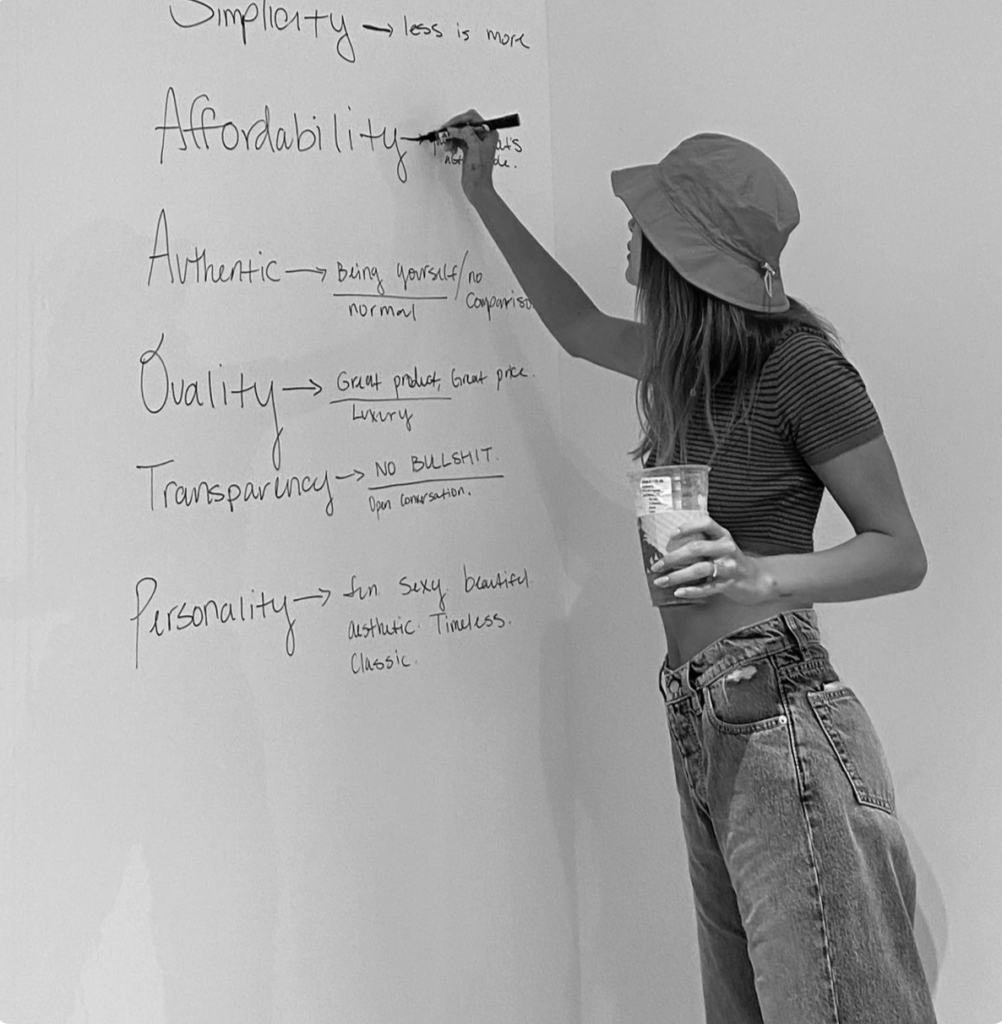 Simplicity → less is more
Affordability →
Authentic → Being yourself/no
normal
Quality → Great product, Great price.
Luxury
Transparency → NO BULLSHIT.
Open conversation.
Personality → fun sexy beautiful
aesthetic. Timeless.
Classic.